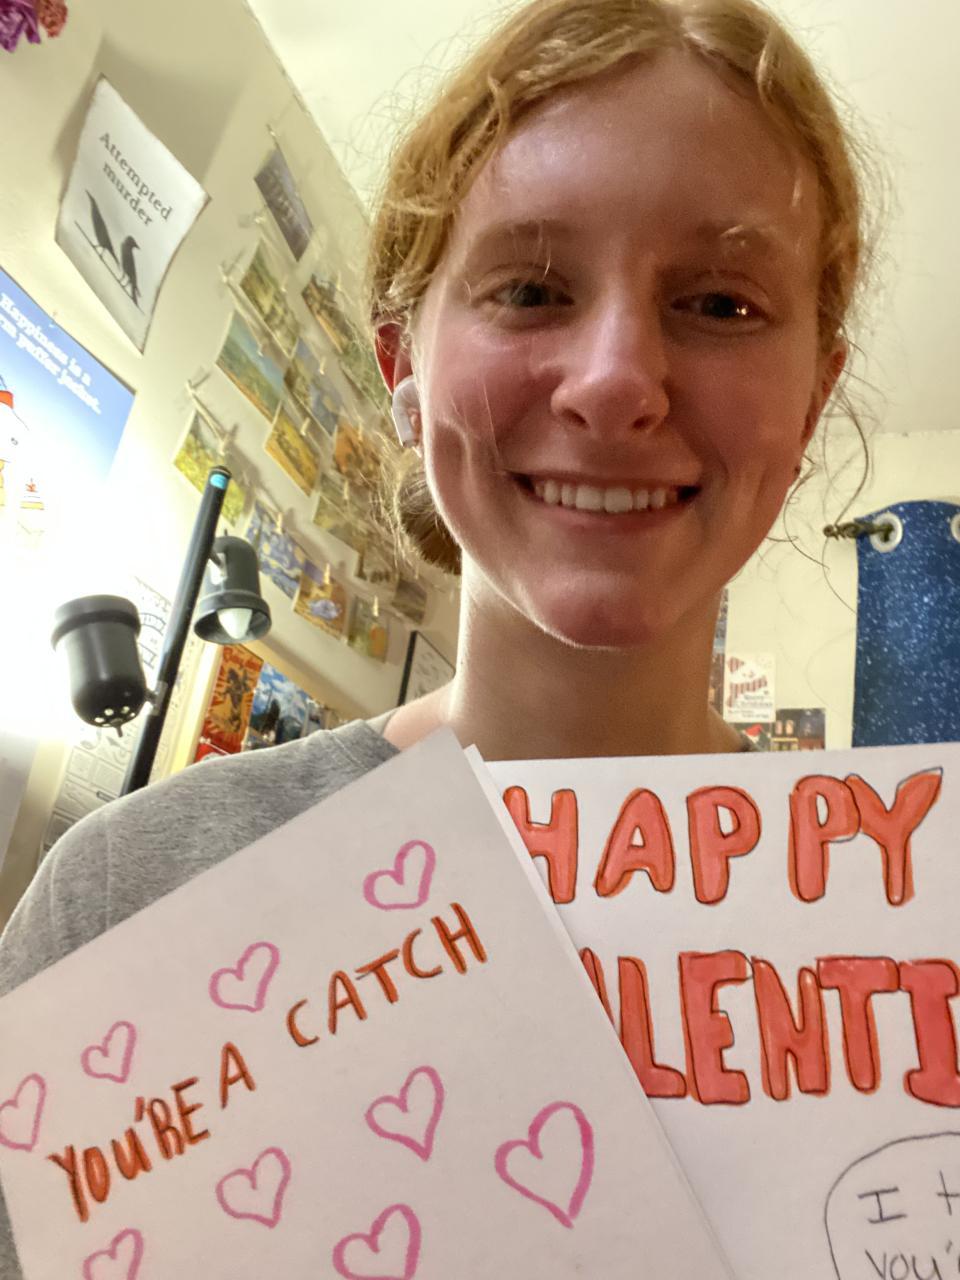 Attempted
murder
Happiness is a
puffer jacket.
YOU'RE A CATCH
HAPPY
LENTI
I
YOU'